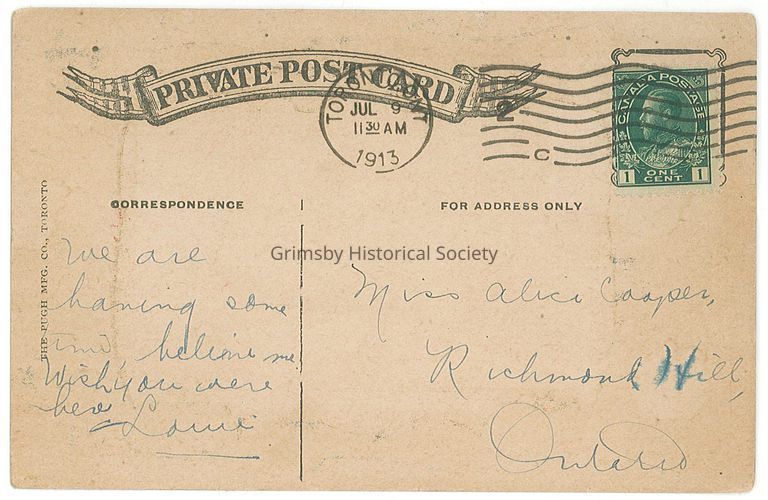 PRIVATE POST CARD
TORONTO, ONT
JUL 9
11 30 AM
1913
2
C
CANADA POSTAGE
1 ONE CENT 1
THE PUGH MFG. CO., TORONTO
CORRESPONDENCE
FOR ADDRESS ONLY
Grimsby Historical Society
We are
having some
time, believe me
Wish you were
here
Miss Alice Cooper,
Richmond Hill,
Ontario